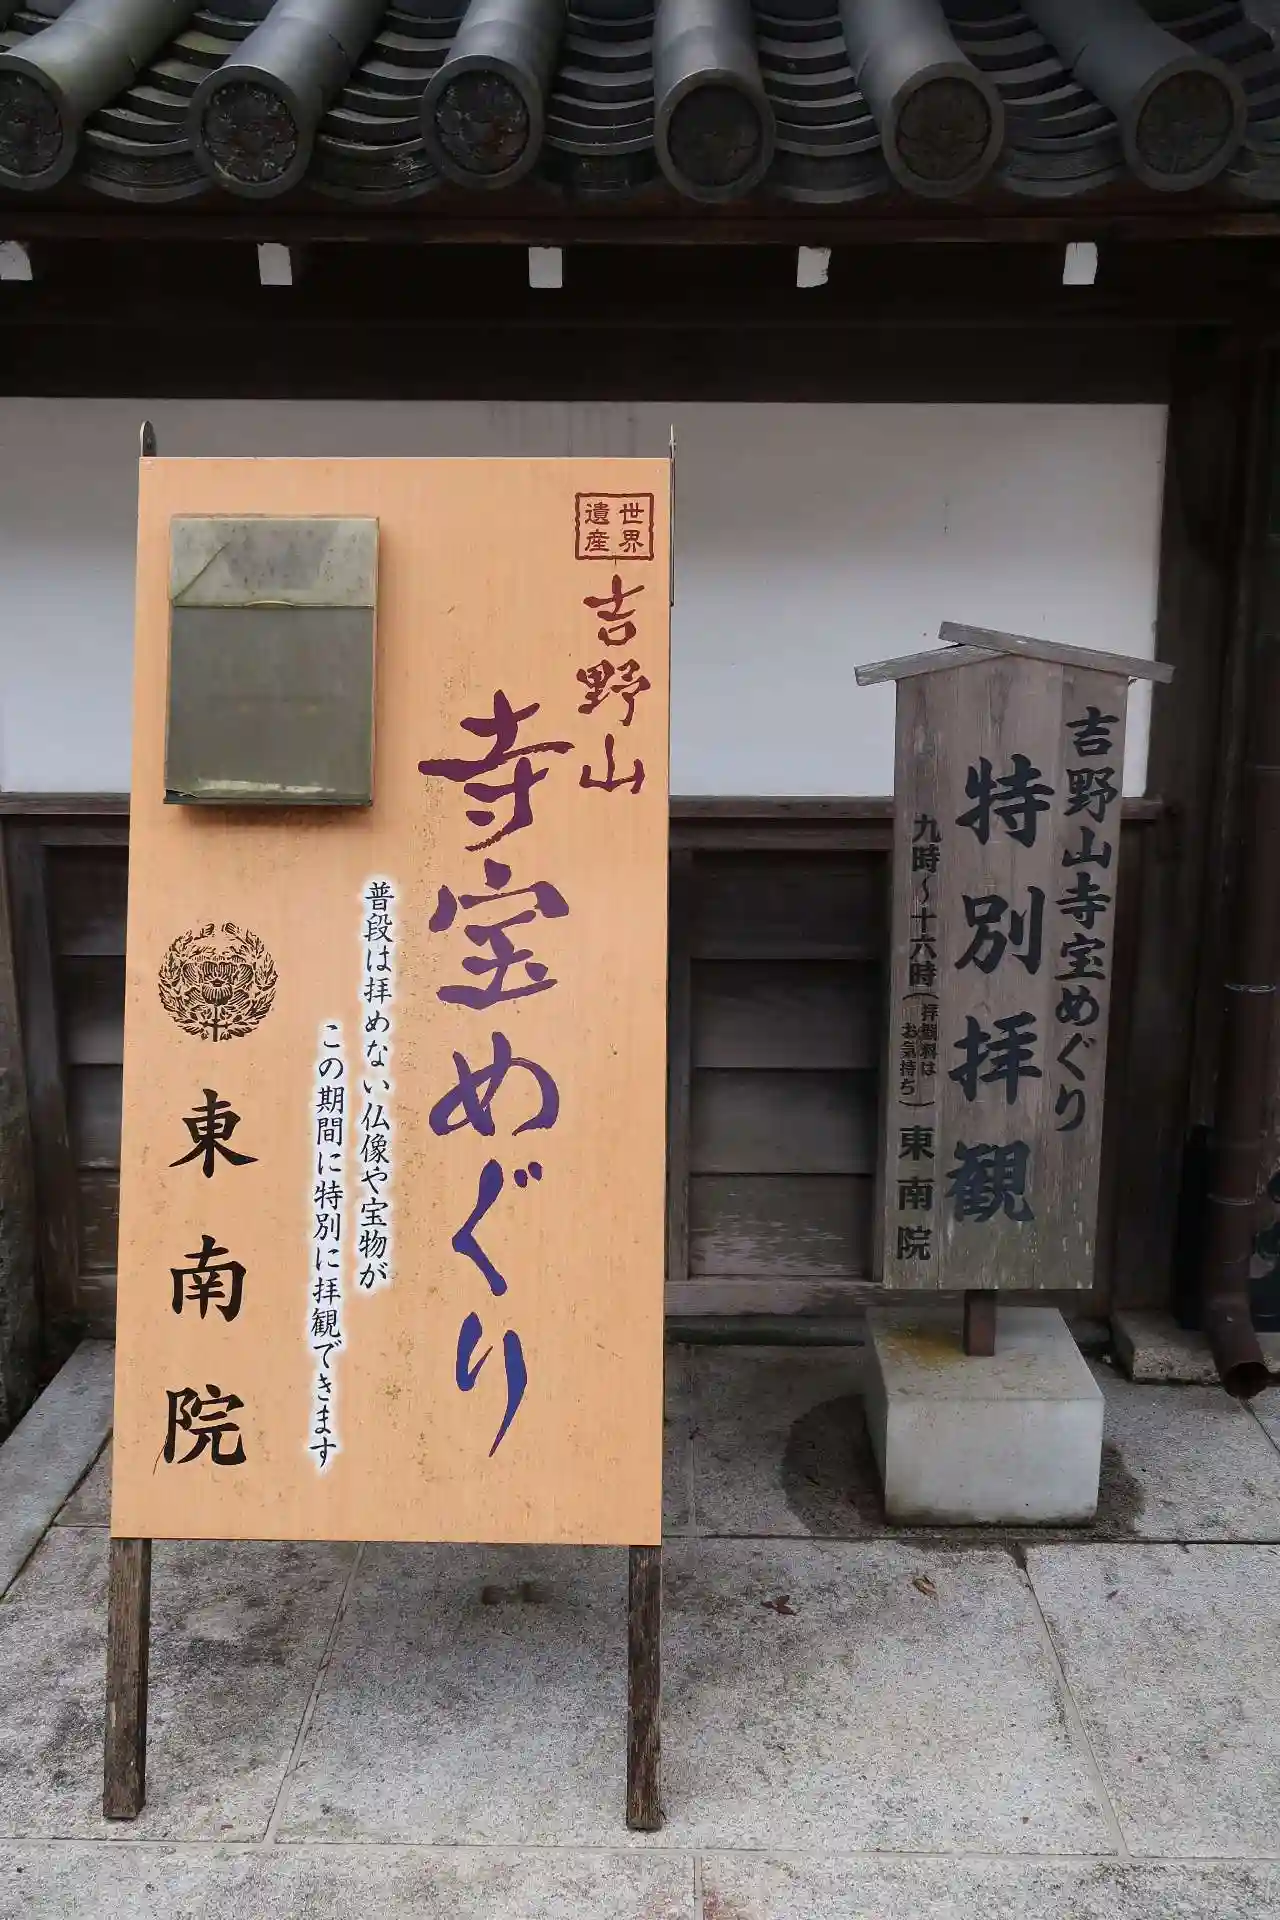 世界
遺産
吉野山
寺宝めぐり
普段は拝めない仏像や宝物が
この期間に特別に拝観できます
東南院
吉野山寺宝めぐり
特別拝観
九時〜十六時(拝観料は
お気持ち)東南院